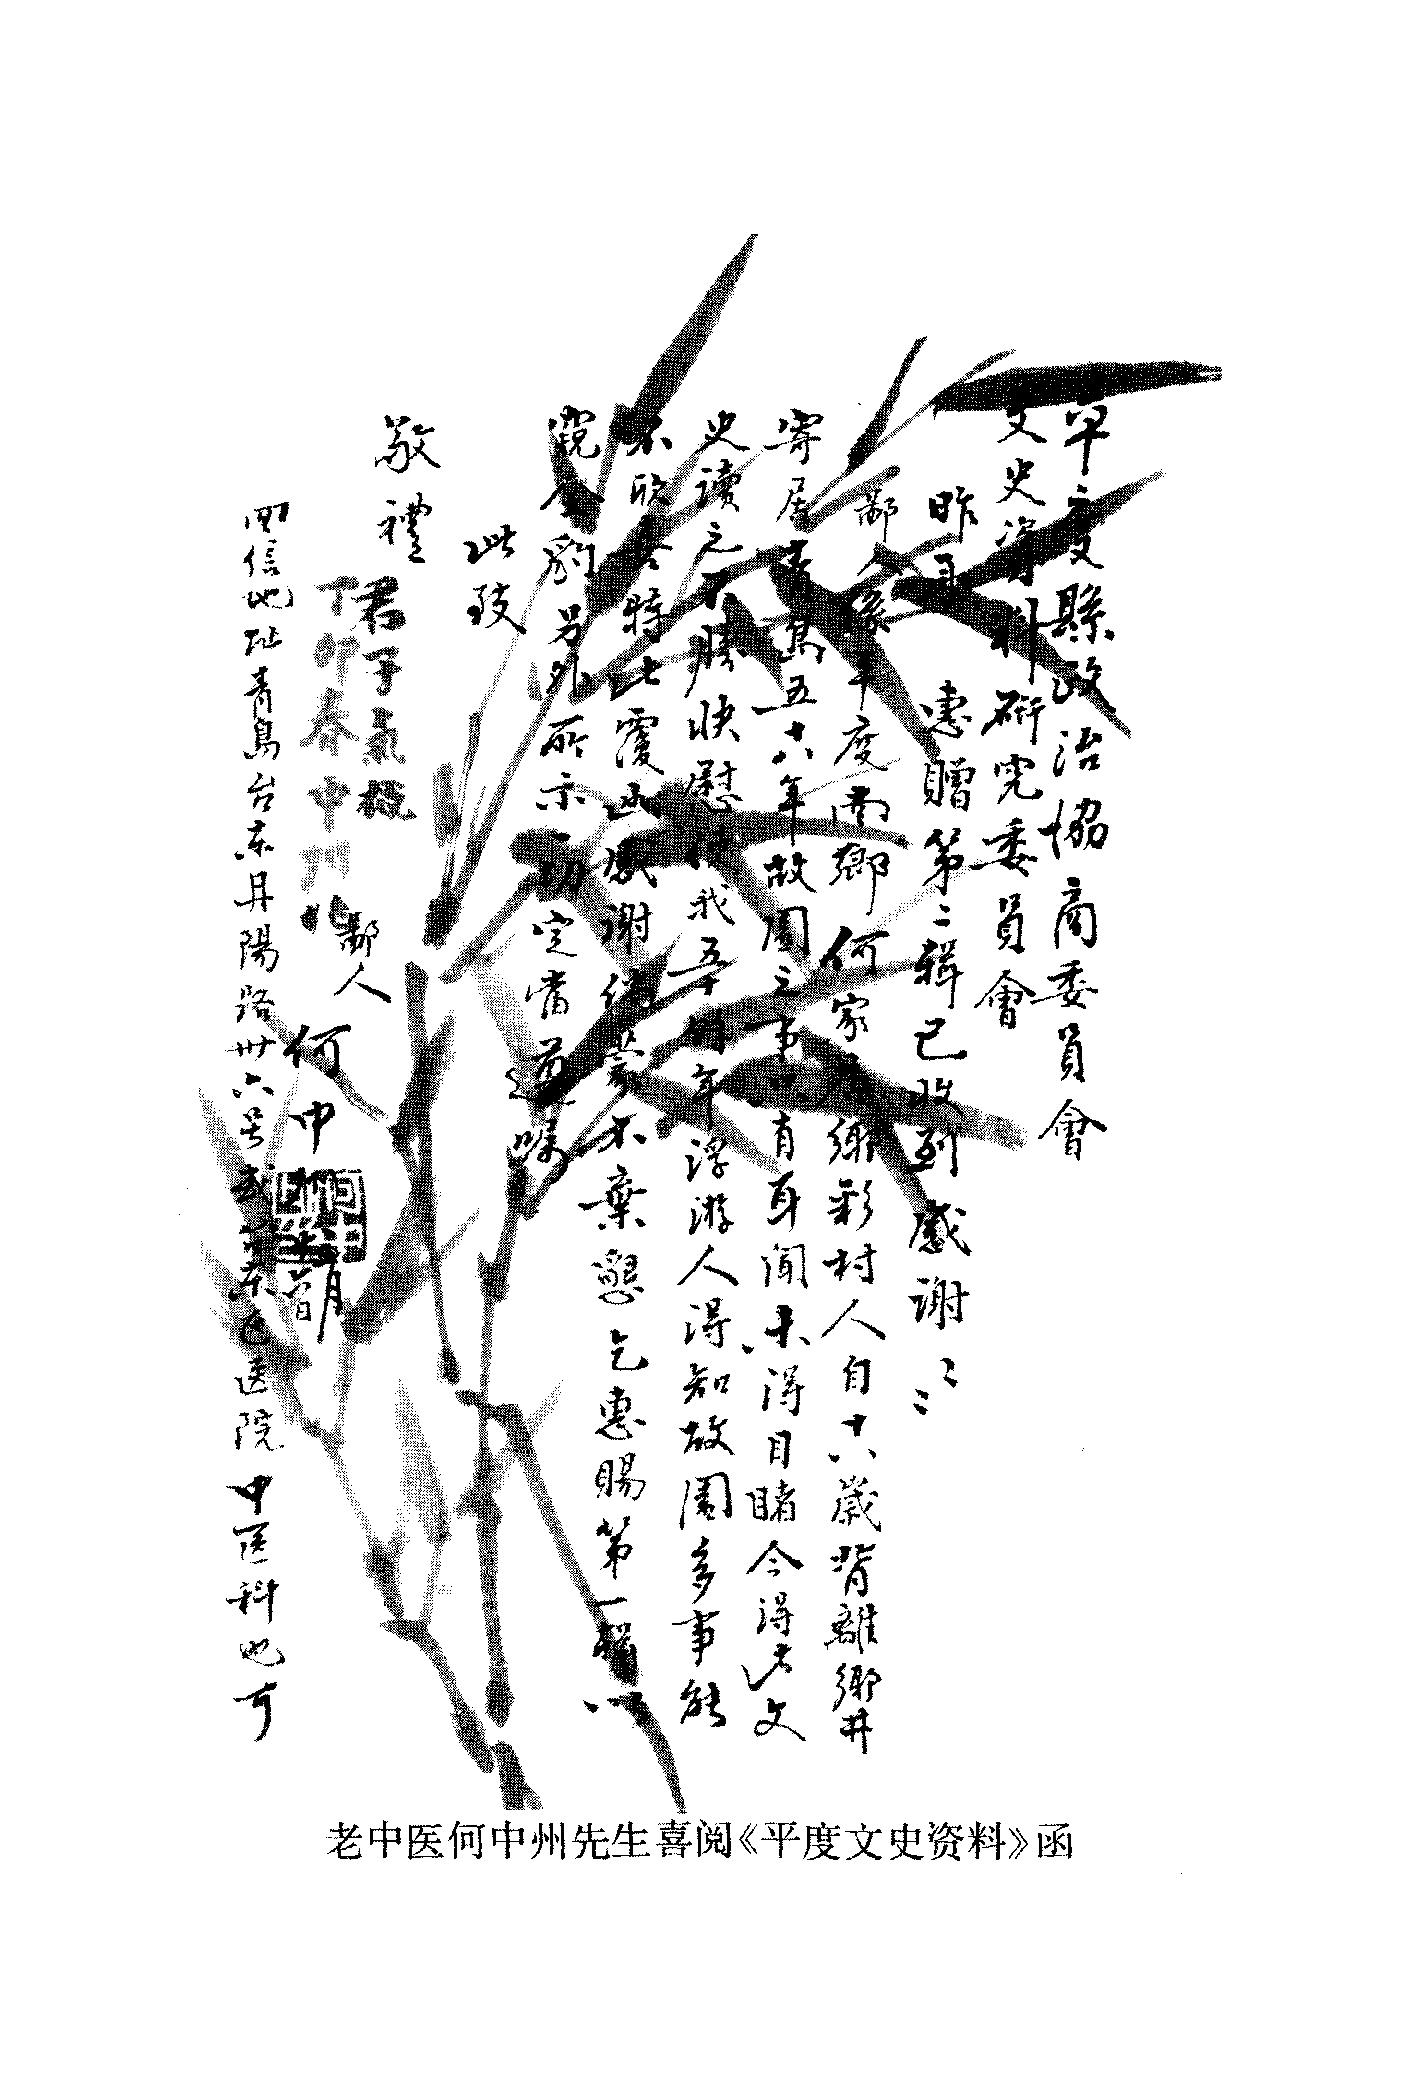 平度縣政治協商委員會
文史資料研究委員會
昨日 惠贈第二輯已收到感謝〻
鄙人係平度西鄉何家 鄉彩村人自十六歲背離鄉井
寄居青島五十八年故園之事只有耳聞未得目睹今得此文
史讀之不勝快慰使我五十餘年浮游人得知故園多事能
不欣喜特此覆函感謝倘蒙不棄懇乞惠賜第一輯以
窺全豹另外所示 定當遵囑
此致
敬禮
君子氣概
丁卯春中州
鄙人
何中州
回信地址青島台東丹陽路卅六号或 医院中医科也可
老中医何中州先生喜阅《平度文史资料》函